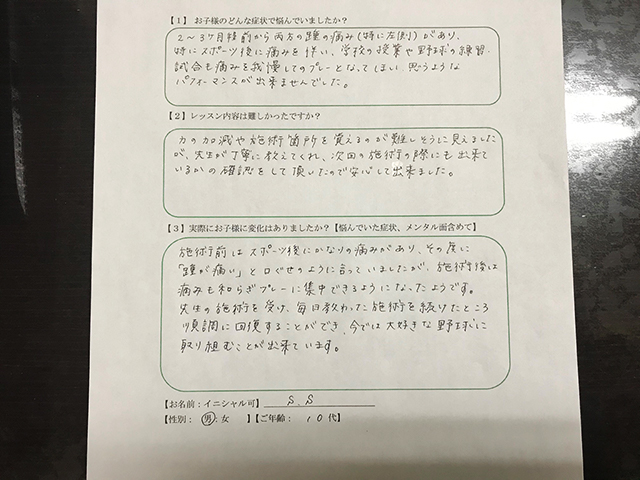 【1】 お子様のどんな症状で悩んでいましたか?
2~3ヶ月程前から両方の踵の痛み(特に左側)があり、
特にスポーツ後に痛みを伴い、学校の授業や野球の練習・
試合も痛みを我慢してのプレーとなってしまい、思うような
パフォーマンスが出来ませんでした。
【2】 レッスン内容は難しかったですか?
力の加減や施術箇所を覚えるのが難しそうに見えました
が、先生が丁寧に教えてくれ、次回の施術の際にも出来て
いるかの確認をして頂いたので安心して出来ました。
【3】 実際にお子様に変化はありましたか?【悩んでいた症状、メンタル面含めて】
施術前はスポーツ後にかなりの痛みがあり、その度に
「踵が痛い」と口ぐせのように言っていましたが、施術後は
痛みも和らぎプレーに集中できるようになったようです。
先生の施術を受け、毎日教わった施術を続けたところ
順調に回復することができ、今では大好きな野球に
取り組むことが出来ています。
【お名前:イニシャル可】 S.S
【性別: 男・女 】【ご年齢: 10 代】